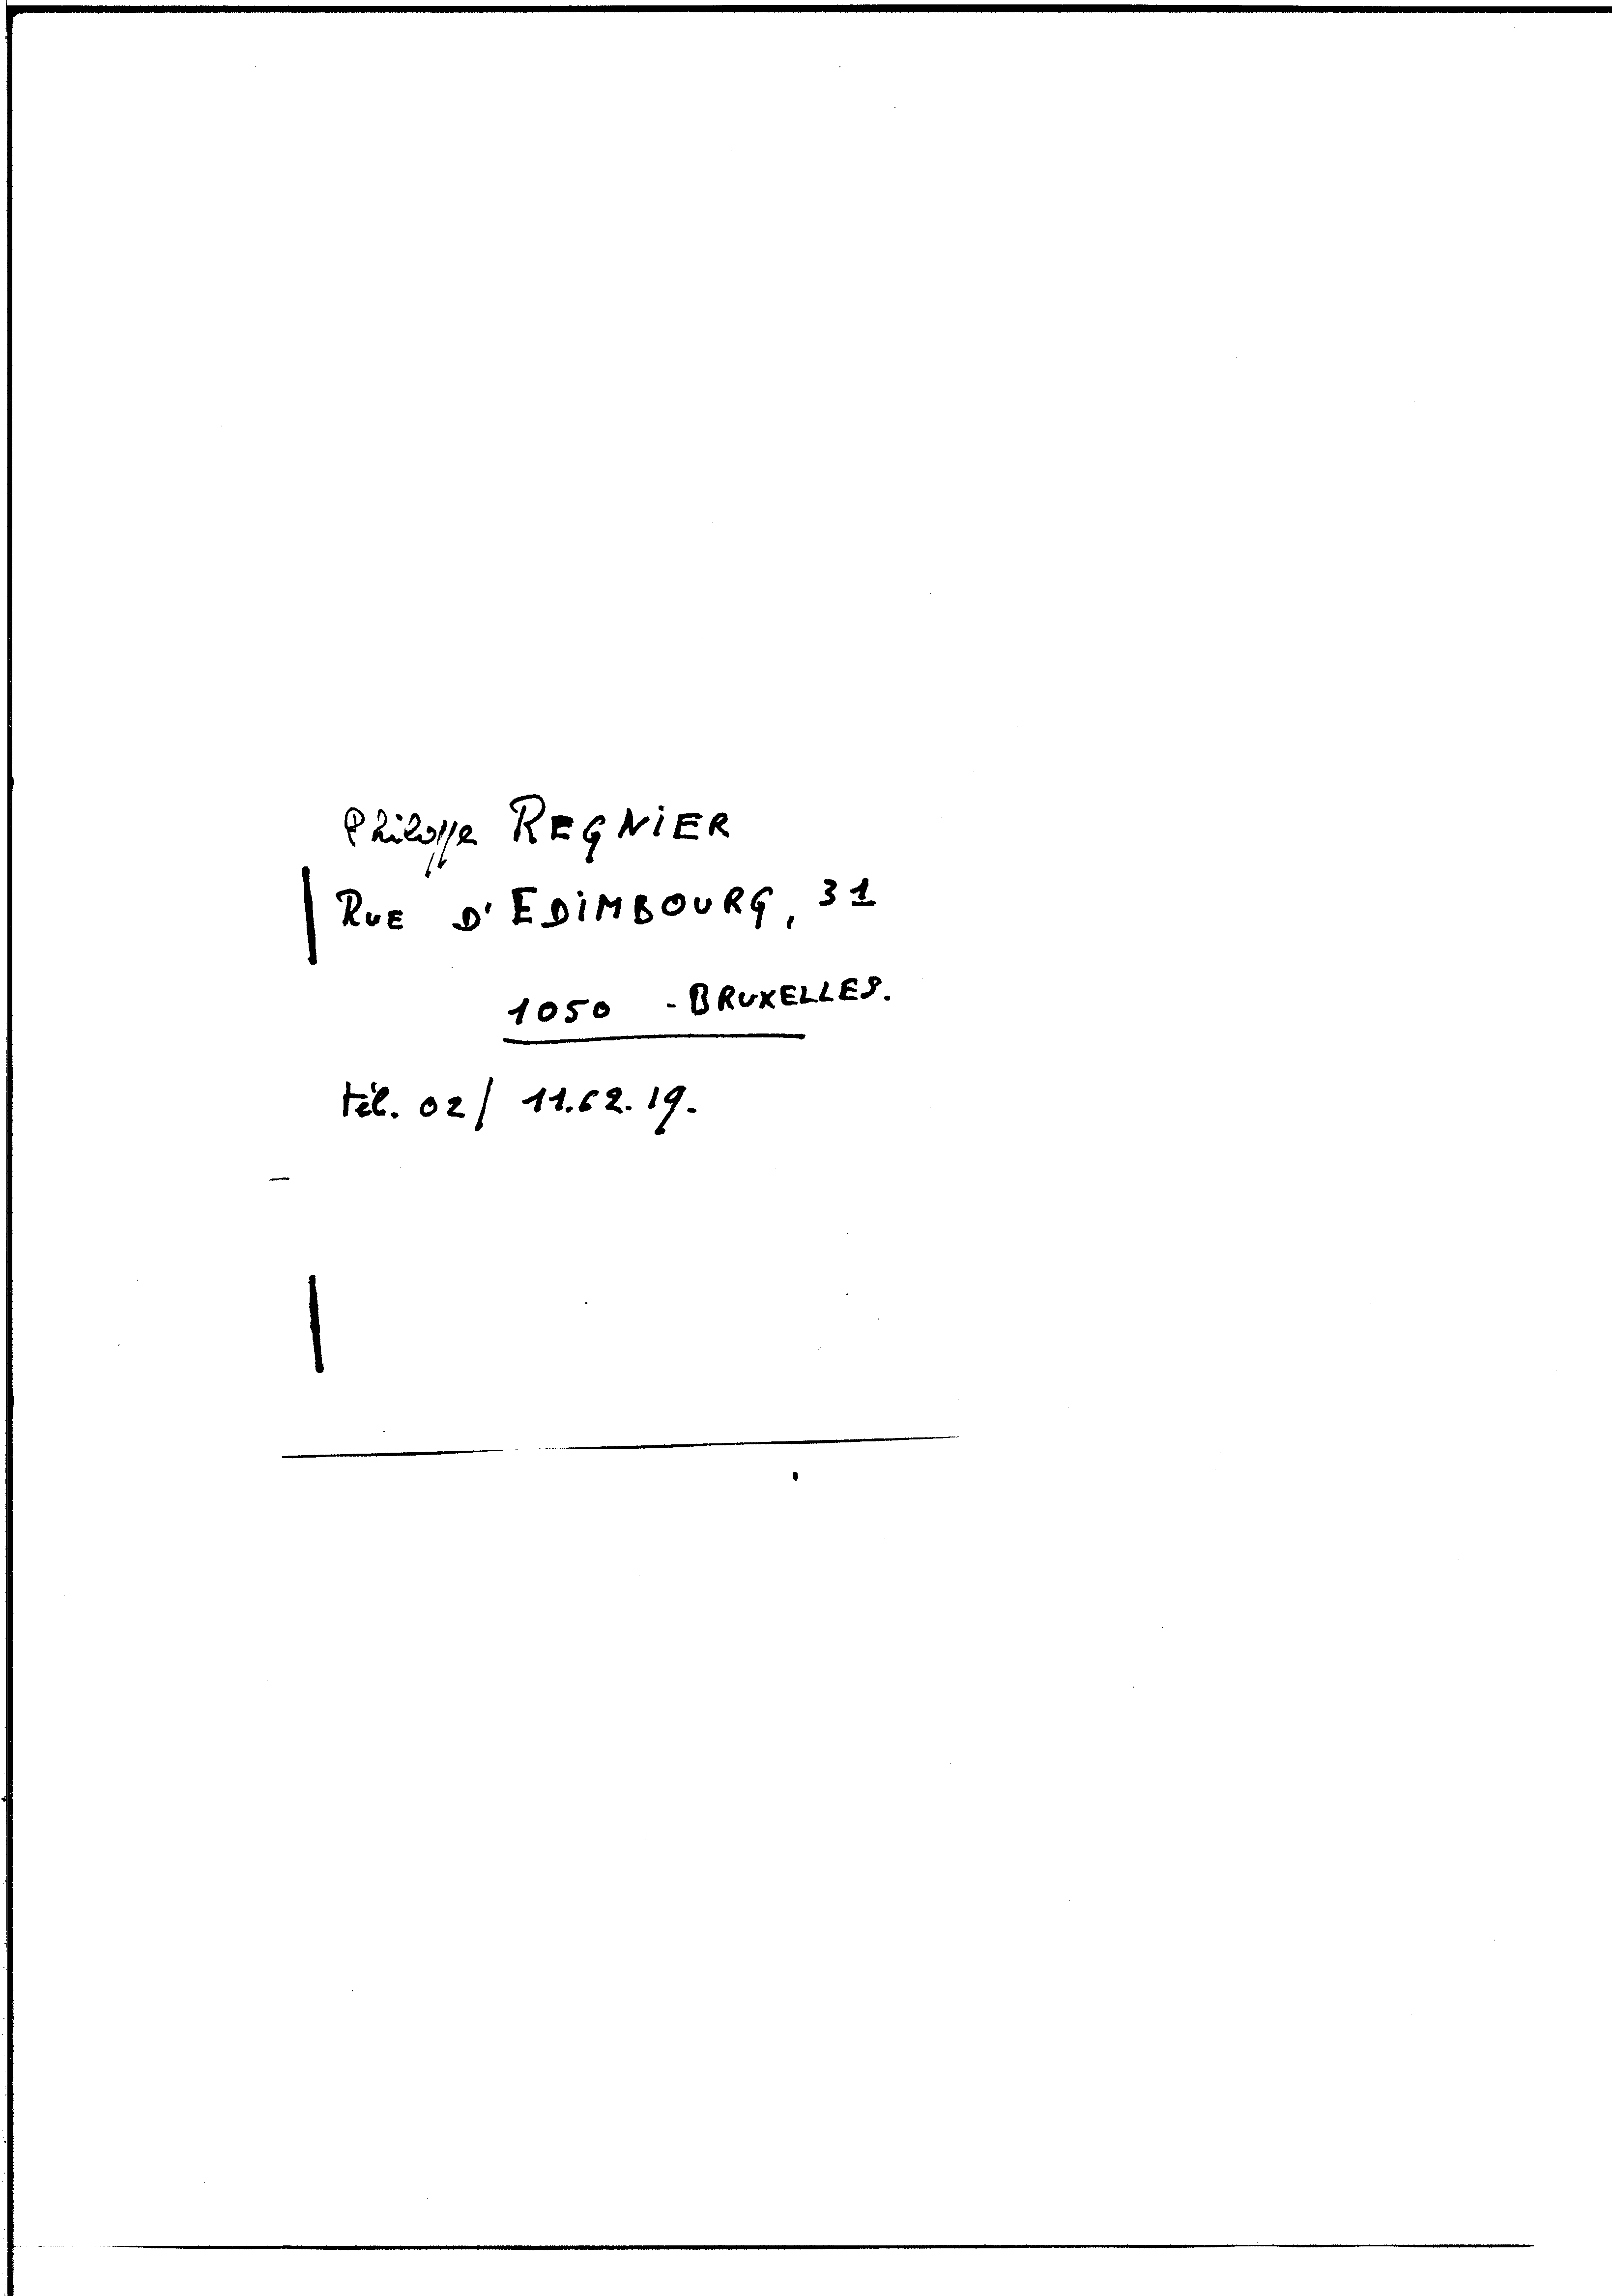 Philippe REGNIER
RUE D'EDIMBOURG, 31
1050 - BRUXELLES.
tél. 02/ 11.62.19.